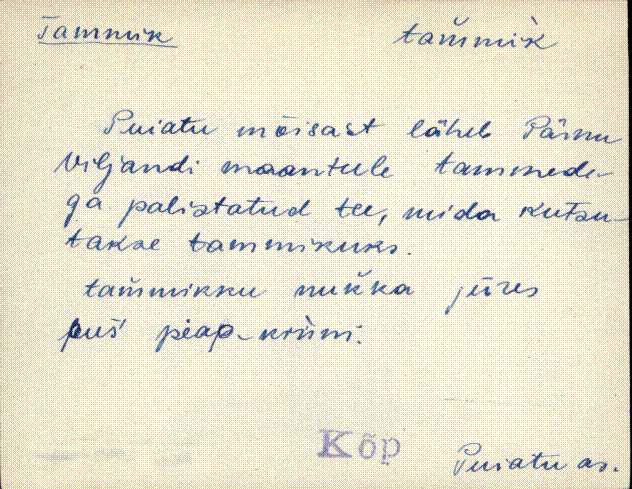 Tammik tam̆mìk
Puiatu mõisast läheb Pärnu
Viljandi maantele tammede-
ga palistatud tee, mida kutsu-
takse tammikuks.
tam̆mikku nuk̆ka jüres
piap-krùni.
Kõp
Puiatu as.